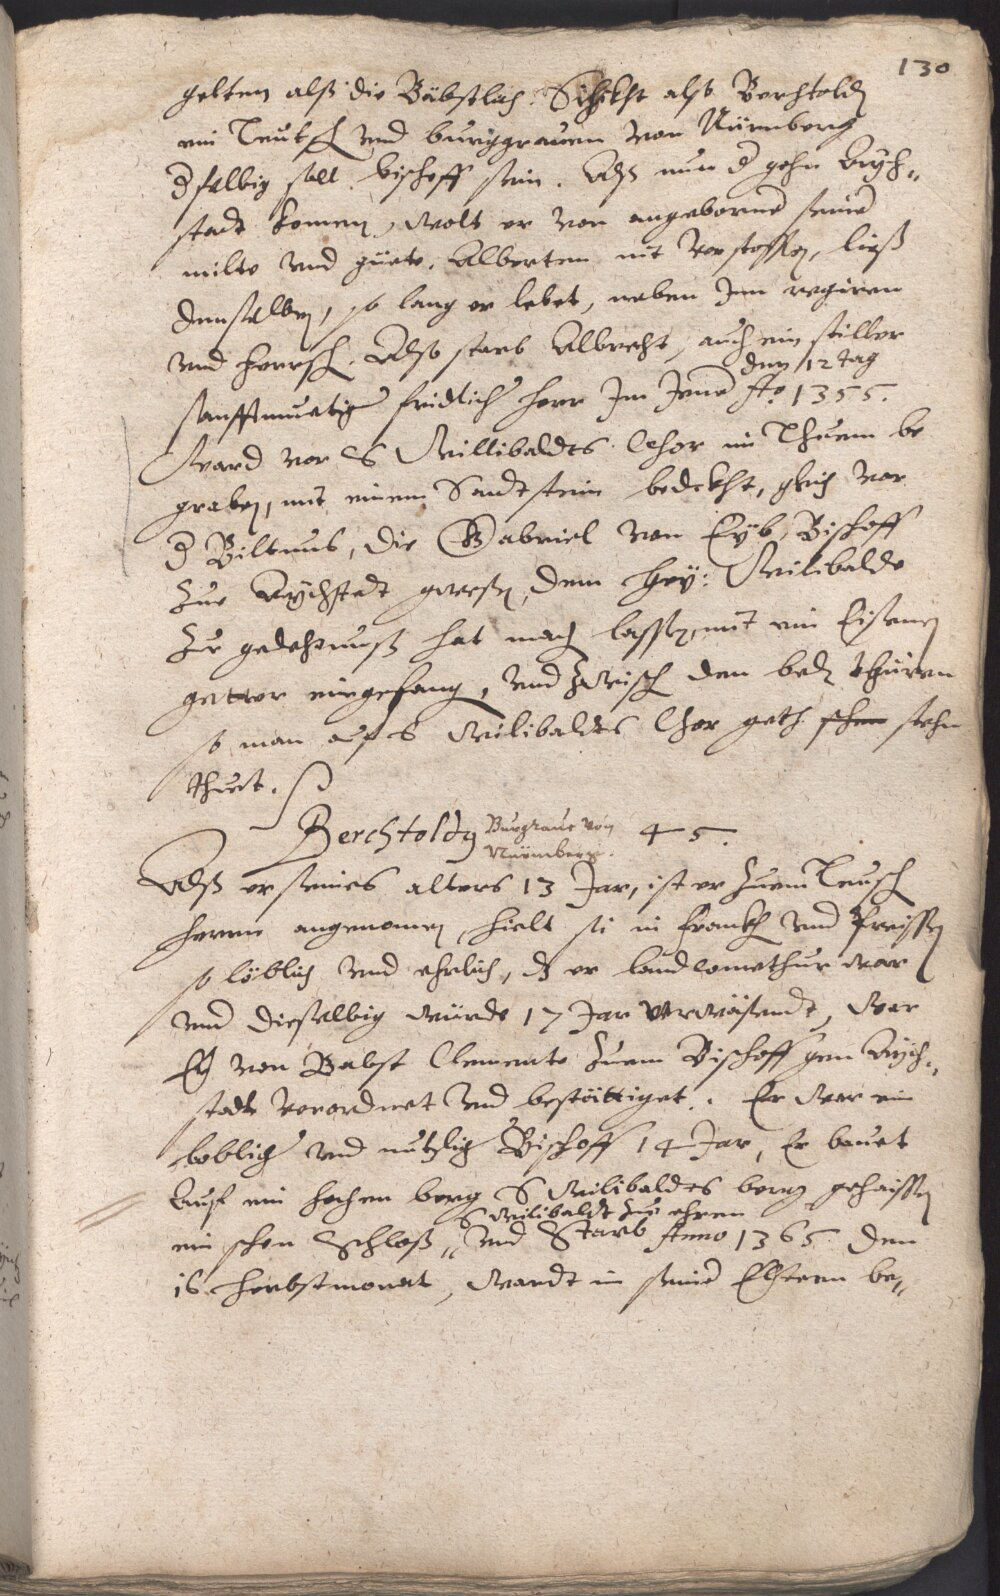 130
gelten alß die Bäbstlich. Schikht alß Berchtoldt
ein Teutsch und burggrauen von Nürmberg
dselbig solt bischoff sein. Alß nun d gehn Aych-
stadt komen, wolt er von angeborne seine
milte und güete, Alberten nit verstossen, ließ
denselben, so lang er lebet, neben Im regiren
und hersch. Also starb Albrecht, auch ein stiller
den 12 tag
sanfftmuetig fridlich herr Im Jene Ao 1355.
Ward vor S Willibaldts Chor im Thuem be
graben, mit einem Sandtstein bedekht, glich vor
d Biltnus, die Gabriel von Eyb, Bischoff
zue Aychstedt gwesen, dem hey: Wilibaldo
zur gedechnuß hat mach lassen, mit ein Eisenen
gatter eingefang, und zwisch den bed thüren
so man auf S Wilibaldts Chor geth stehn
thuet.
Berchtoldt Burgraue von Nürmberg. 45.
Alß er seines alters 13 Jar, ist er zuem Teusch
herrn angenomen, hielt si in Frankh und Preissen
so löblich und ehrlich, dz er landcomethur war
und dieselbig würde 17 Jar verwäsendt, War
Er von Babst Clemente zuem Bischoff gen Aych-
stadt verordnet und bestättiget. Er war ein
loblich und nutzlich Bischoff 14 Jar, Er bauet
auf ein hochen berg S Wilibaldes berg gehaissen
S Wilibaldt zue ehren
ein schen Schloß, und Starb Anno 1365 den
16 herbstmonat, Wardt in seine Elteren be-